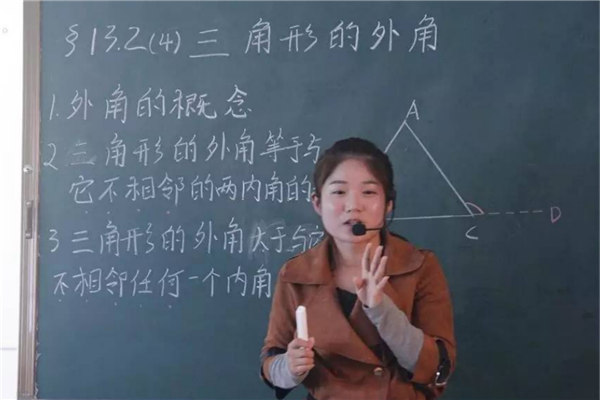 §13.2(4)三角形的外角
1.外角的概念
2 三角形的外角等于与
它不相邻的两内角的
3 三角形的外角大于与它
不相邻任何一个内角
A
C
D